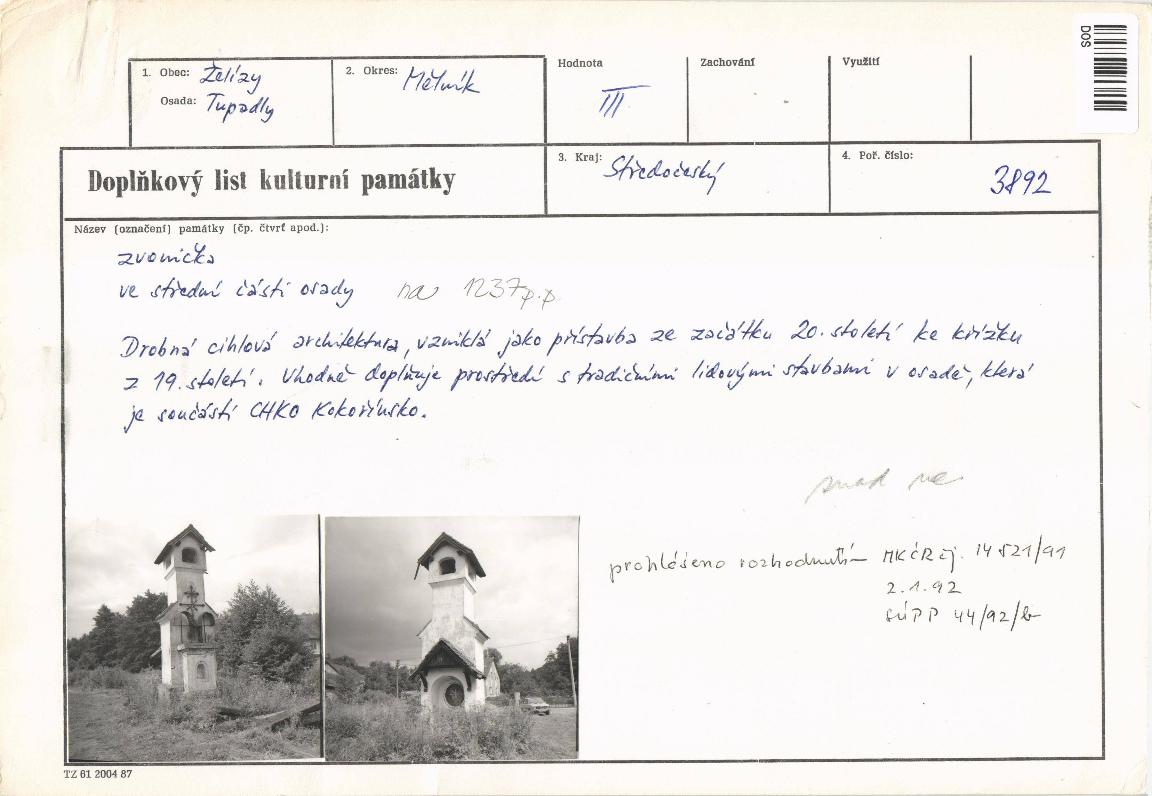 DOS
1. Obec: Želízy
Osada: Tupadly
2. Okres: Mělník
Hodnota
III
Zachování
Využití
Doplňkový list kulturní památky
3. Kraj: Středočeský
4. Poř. číslo:
3892
Název (označení) památky (čp. čtvrť apod.):
zvonička
ve střední části osady na 1237 p.p.
Drobná cihlová architektura, vzniklá jako přístavba ze začátku 20. století ke křížku
z 19. století. Vhodně doplňuje prostředí s tradičními lidovými stavbami v osadě, která
je součástí CHKO Kokořínsko.
snad ne
prohlášeno rozhodnutím MKČR čj. 14521/91
2.1.92
SÚPP 44/92/b
TZ 61 2004 87